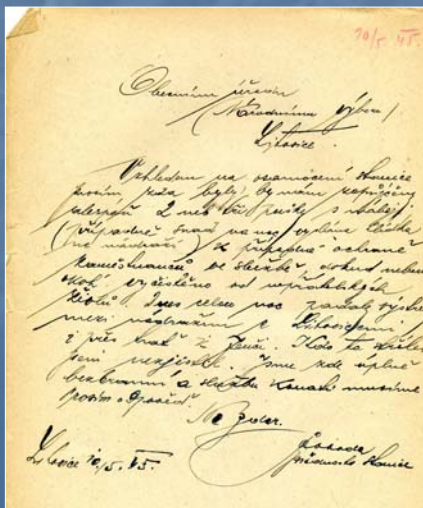 10/5. 45.
Obecnímu úřadu
(Národnímu výboru)
Litovice.
Vzhledem na osamocení stanice
prosím zda byly by nám zapůjčeny
alespoň 2 neb tři pušky s náboji
(případně snad na noc vyslána hlídka
na nádraží) k případné ochraně
zaměstnanců ve službě, dokud nebude
okolí vyčištěno od nepřátelských
živlů. Dnes celou noc padaly výstřely
mezi nádražím a Litovicemi
i přes trať z Ptic. Kdo to střílel
jsme nezjistili. Jsme zde úplně
bezbranní a službu konati musíme
prosím o odpověď.
Na zdar.
Svoboda
přednosta stanice
Litovice 10./5. 45.